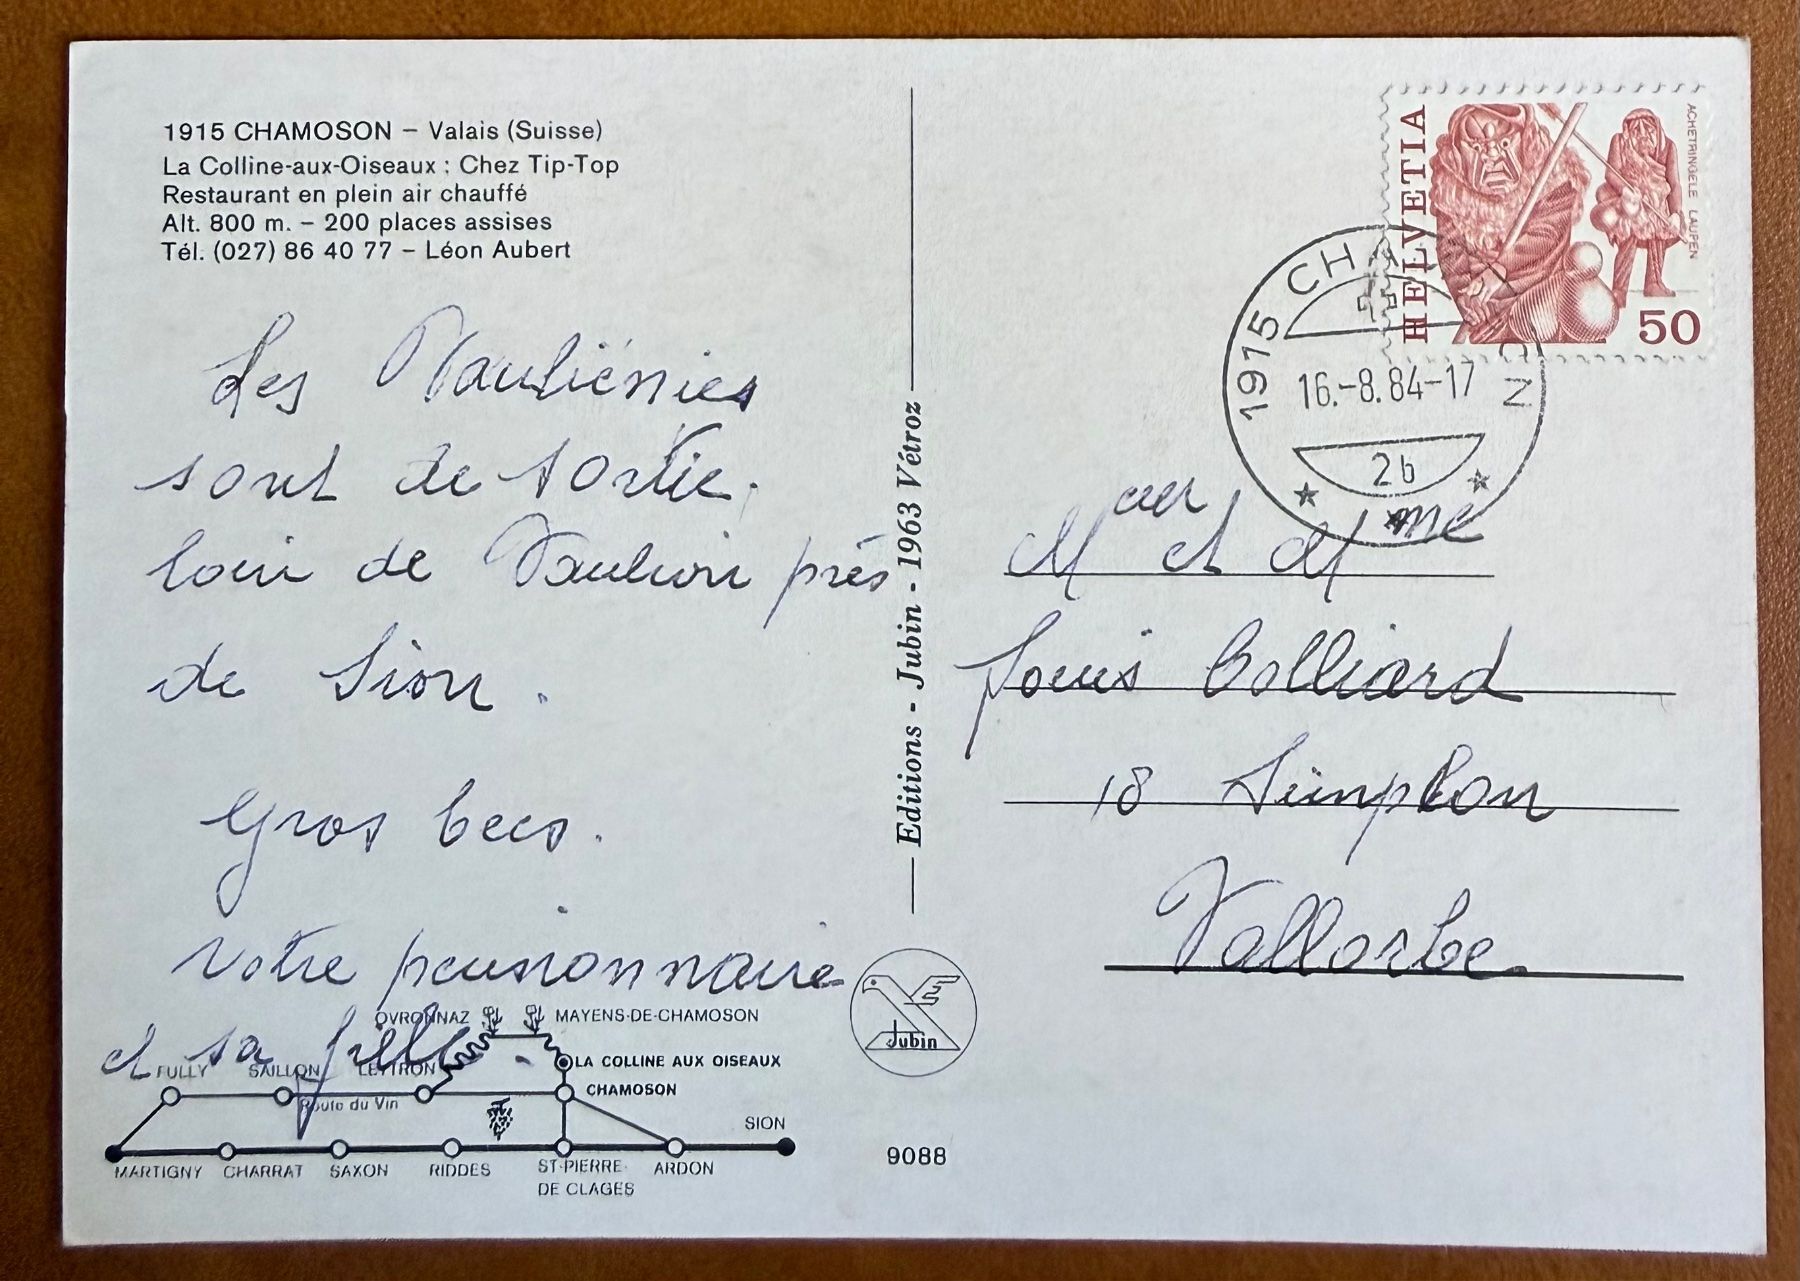 1915 CHAMOSON – Valais (Suisse)
La Colline-aux-Oiseaux : Chez Tip-Top
Restaurant en plein air chauffé
Alt. 800 m. – 200 places assises
Tél. (027) 86 40 77 – Léon Aubert
Les
sont de sortie.
loin de Vaulion près
de Sion.
Gros becs.
Votre pensionnaire
et sa fille.
Editions - Jubin - 1963 Vétroz
HELVETIA
ACHETRINGELE LAUPEN
50
1915 CHAMOSON
16.-8.84-17
2b
M et Mme
Louis Bolliard
18 Simplon
Vallorbe
Jubin
OVRONNAZ
MAYENS-DE-CHAMOSON
LA COLLINE AUX OISEAUX
FULLY
SAILLON
LEYTRON
CHAMOSON
Route du Vin
SION
MARTIGNY
CHARRAT
SAXON
RIDDES
ST-PIERRE-
DE CLAGES
ARDON
9088